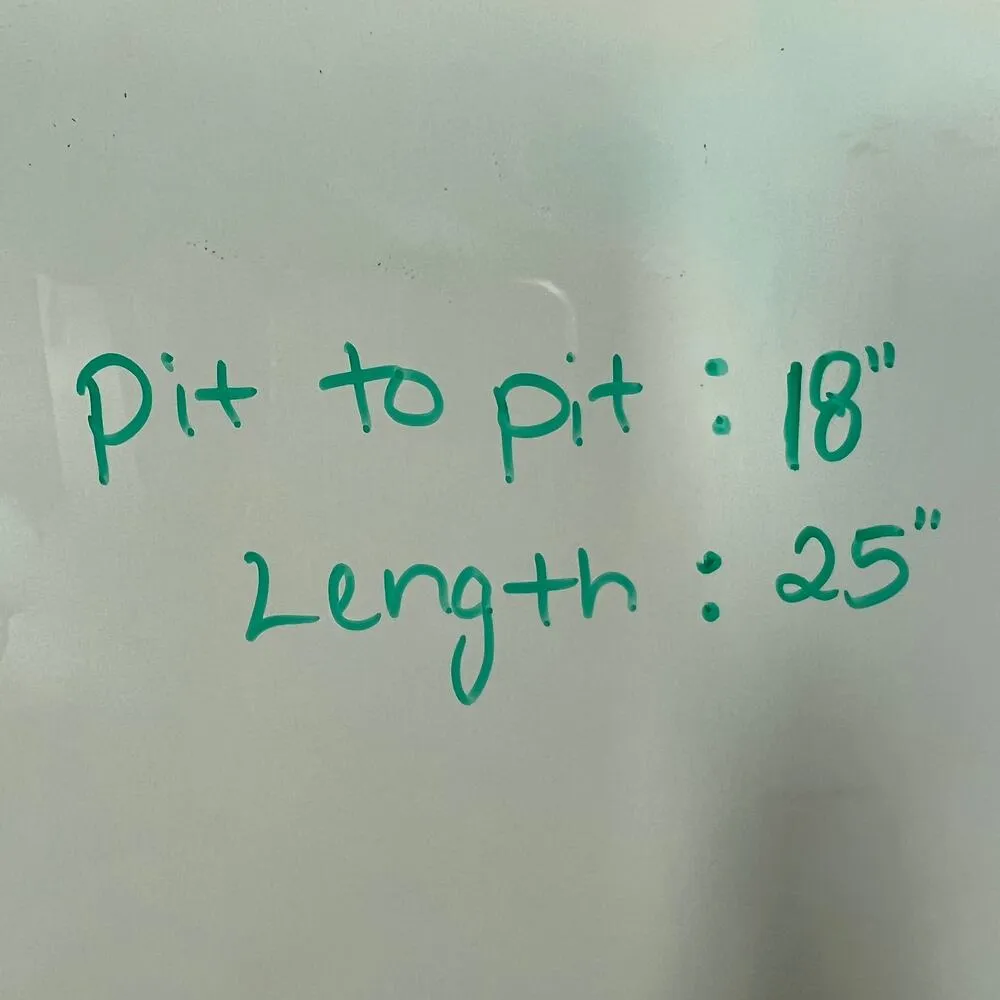 pit to pit : 18"
Length : 25"